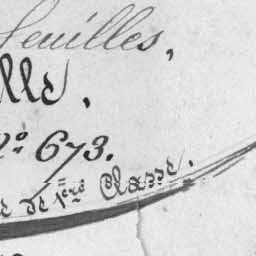 feuilles,
lle.
N° 673.
e de 1ère Classe.